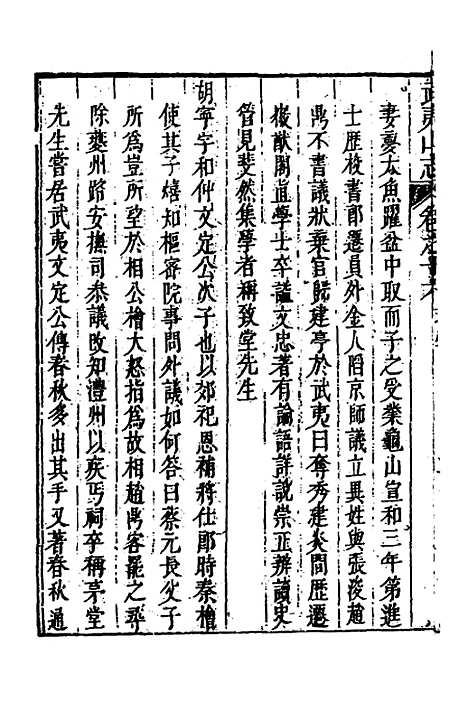 武夷山志
妻夢大魚躍盆中取而子之受業龜山宣和三年第進
士歷校書郎遷員外金人陷京師議立異姓與張浚趙
鼎不書議狀棄官歸建亭於武夷曰奪秀建炎間歷遷
徽猷閣直學士卒諡文忠著有論語詳說崇正辨讀史
管見斐然集學者稱致堂先生
胡寧字和仲文定公次子也以郊祀恩補將仕郎時秦檜
使其子熺知樞密院事問外議如何答曰蔡元長父子
所為豈所望於相公檜大怒指為故相趙鼎客罷之尋
除夔州路安撫司參議改知澧州以疾丐祠卒稱茅堂
先生嘗居武夷文定公傳春秋多出其手又著春秋通